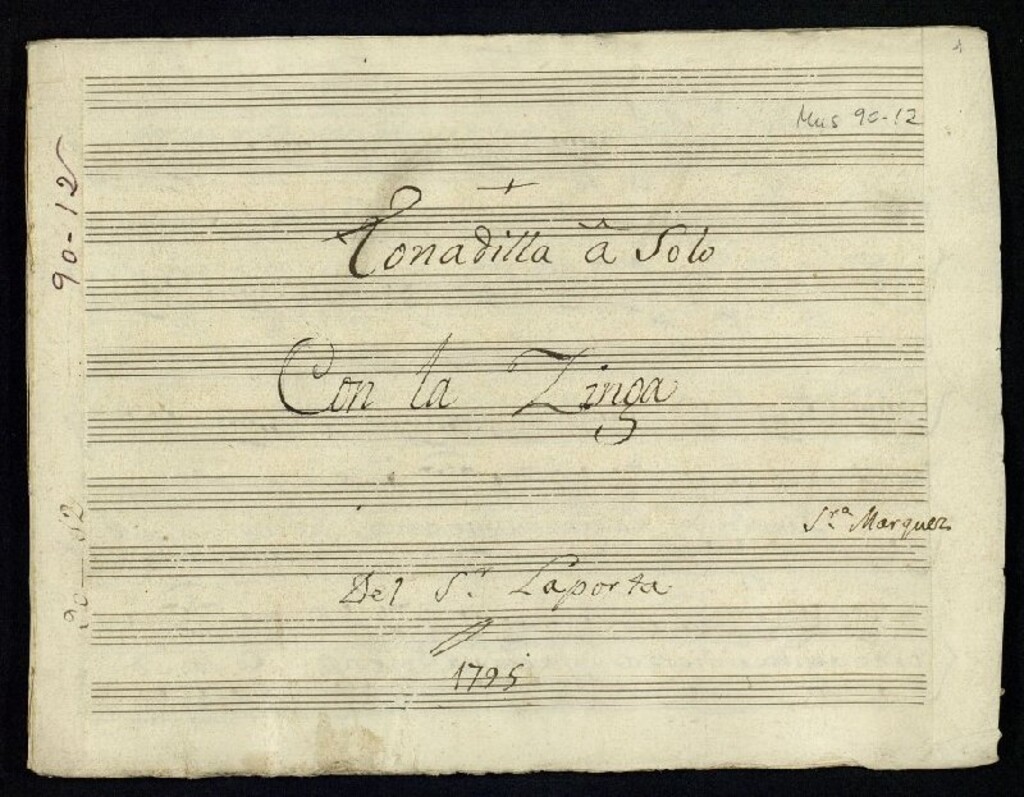 1
Mus 90-12
90-12
Tonadilla â Solo
Con la Zinga
Sra. Marquez
90-12
Del Sr. Laporta
1795